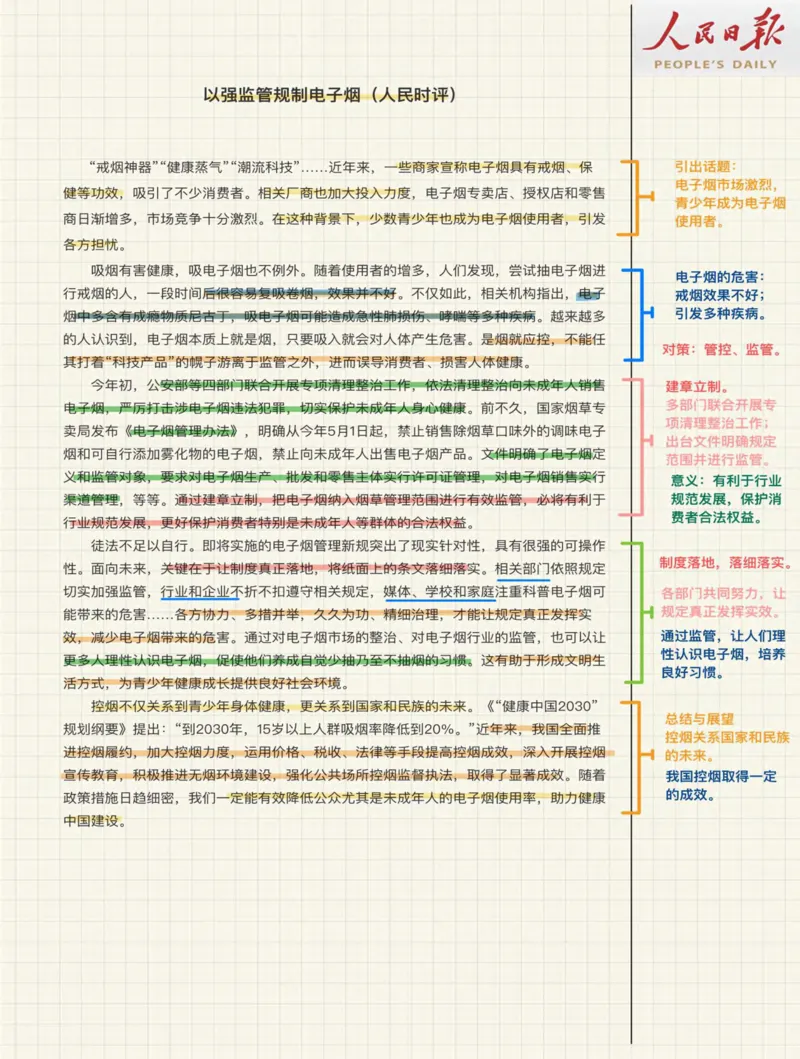 人民日报
PEOPLE'S DAILY
以强监管规制电子烟（人民时评）
“戒烟神器”“健康蒸气”“潮流科技”……近年来，一些商家宣称电子烟具有戒烟、保
健等功效，吸引了不少消费者。相关厂商也加大投入力度，电子烟专卖店、授权店和零售
商日渐增多，市场竞争十分激烈。在这种背景下，少数青少年也成为电子烟使用者，引发
各方担忧。
吸烟有害健康，吸电子烟也不例外。随着使用者的增多，人们发现，尝试抽电子烟进
行戒烟的人，一段时间后很容易复吸卷烟，效果并不好。不仅如此，相关机构指出，电子
烟中多含有成瘾物质尼古丁，吸电子烟可能造成急性肺损伤、哮喘等多种疾病。越来越多
的人认识到，电子烟本质上就是烟，只要吸入就会对人体产生危害。是烟就应控，不能任
其打着“科技产品”的幌子游离于监管之外，进而误导消费者、损害人体健康。
今年初，公安部等四部门联合开展专项清理整治工作，依法清理整治向未成年人销售
电子烟，严厉打击涉电子烟违法犯罪，切实保护未成年人身心健康。前不久，国家烟草专
卖局发布《电子烟管理办法》，明确从今年5月1日起，禁止销售除烟草口味外的调味电子
烟和可自行添加雾化物的电子烟，禁止向未成年人出售电子烟产品。文件明确了电子烟定
义和监管对象，要求对电子烟生产、批发和零售主体实行许可证管理，对电子烟销售实行
渠道管理，等等。通过建章立制，把电子烟纳入烟草管理范围进行有效监管，必将有利于
行业规范发展，更好保护消费者特别是未成年人等群体的合法权益。
徒法不足以自行。即将实施的电子烟管理新规突出了现实针对性，具有很强的可操作
性。面向未来，关键在于让制度真正落地，将纸面上的条文落细落实。相关部门依照规定
切实加强监管，行业和企业不折不扣遵守相关规定，媒体、学校和家庭注重科普电子烟可
能带来的危害……各方协力、多措并举，久久为功、精细治理，才能让规定真正发挥实
效，减少电子烟带来的危害。通过对电子烟市场的整治、对电子烟行业的监管，也可以让
更多人理性认识电子烟，促使他们养成自觉少抽乃至不抽烟的习惯。这有助于形成文明生
活方式，为青少年健康成长提供良好社会环境。
控烟不仅关系到青少年身体健康，更关系到国家和民族的未来。《“健康中国2030”
规划纲要》提出：“到2030年，15岁以上人群吸烟率降低到20%。”近年来，我国全面推
进控烟履约，加大控烟力度，运用价格、税收、法律等手段提高控烟成效，深入开展控烟
宣传教育，积极推进无烟环境建设，强化公共场所控烟监督执法，取得了显著成效。随着
政策措施日趋细密，我们一定能有效降低公众尤其是未成年人的电子烟使用率，助力健康
中国建设。
引出话题：
电子烟市场激烈，
青少年成为电子烟
使用者。
电子烟的危害：
戒烟效果不好；
引发多种疾病。
对策：管控、监管。
建章立制。
多部门联合开展专
项清理整治工作；
出台文件明确规定
范围并进行监管。
意义：有利于行业
规范发展，保护消
费者合法权益。
制度落地，落细落实。
各部门共同努力，让
规定真正发挥实效。
通过监管，让人们理
性认识电子烟，培养
良好习惯。
总结与展望
控烟关系国家和民族
的未来。
我国控烟取得一定
的成效。